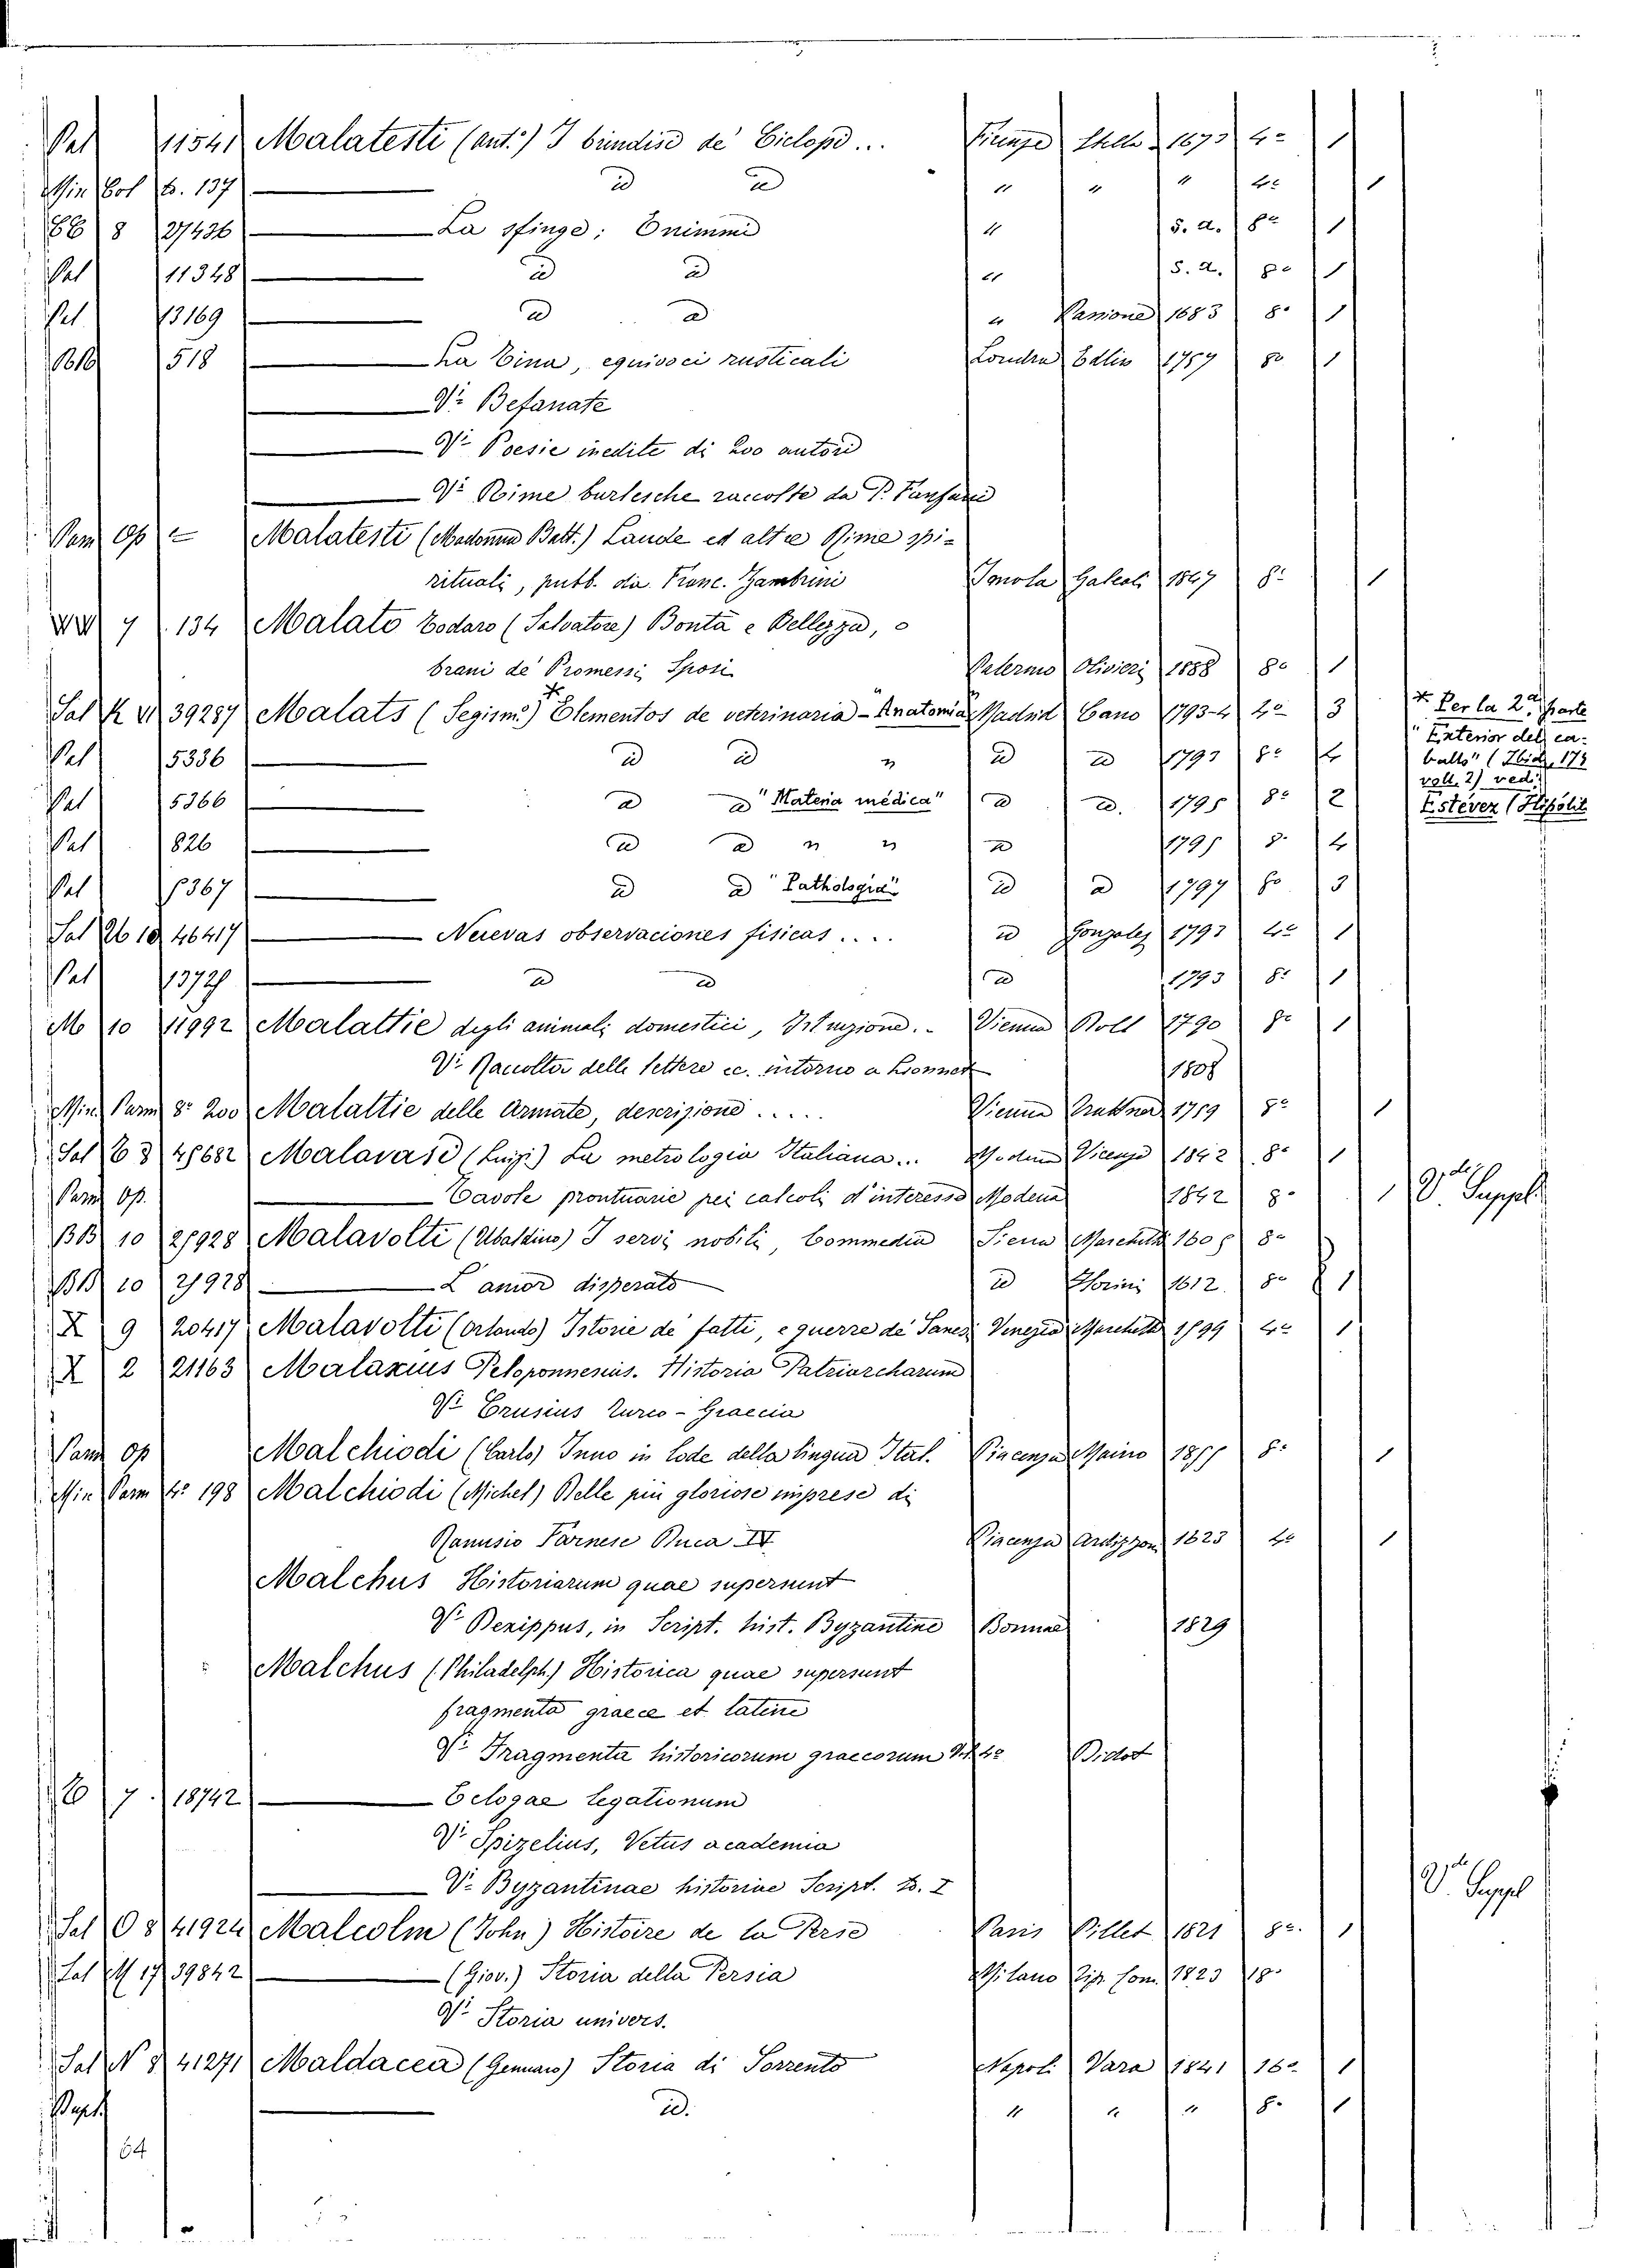 Pal 11541 Malatesti (Ant.º) I brindisi de' Ciclopi... Firenze Stella 1673 4º 1
Min Col b. 137 id id " " " 4º 1
BB 8 27436 La sfinge; Enimmi " s. a. 8º 1
Pal 11348 id id " s. a. 8º 1
Pal 13169 id id " Passione 1683 8º 1
518 La Tina, equivoci rusticali Londra Edlin 1757 8º 1
Vi Befanate
Vi Poesie inedite di 200 autori
Vi Rime burlesche raccolte da P. Fanfani
Pam Op Malatesti (Madonna Batt.) Laude ed altre Rime spi-
rituali, pubb. da Franc. Zambrini Imola Galeati 1847 8º 1
VV 7 134 Malato Todaro (Salvatore) Bontà e Bellezza, o
brani de' Promessi Sposi Palermo Olivieri 1888 8º 1
Sal K VI 39287 Malats (Segism.º) Elementos de veterinaria - "Anatomia" Madrid Cano 1793-4 4º 3
* Per la 2ª parte
"Exterior del ca-
ballo" (Ibid, 179
voll. 2) vedi
Estévez (Hipólit
Pal 5336 id id " id id 1793 8º
Pal 5366 id id "Materia médica" id id. 1795 8º 2
Pal 826 id id " " id 1795 8º 4
Pal 5367 id id "Pathologia" id id 1797 8º 3
Sal 46417 Nuevas observaciones fisicas.... id Gonzalez 1793 4º 1
Pal 13729 id id id 1793 8º 1
M 10 11992 Malattie degli animali domestici, Istruzione.. Vienna 1790 8º 1
Vi Raccolta delle lettere ec. intorno a 1808
Min Parm 8º 200 Malattie delle Armate, descrizione..... Vienna Trattner 1759 8º 1
Sal 8 48682 Malavasi (Luigi) La metrologia Italiana... Modena Vicenzi 1842 8º 1
Parm Op. Tavole prontuarie pei calcoli d'interesse Modena 1842 8º 1 Vde Suppl
BB 10 25928 Malavolti (Ubaldino) I servi nobili, Commedia Siena Marchetti 1605 8º
BB 10 25928 L'amor disperato id Florini 1612. 8º 1
X 9 20417 Malavolti (Orlando) Istorie de' fatti, e guerre de' Sanesi Venezia Marchetti 1599 4º 1
X 2 21163 Malaxius Peloponnenius. Historia Patriarcharum
Vi Crusius Turco-Graecia
Parm Op Malchiodi (Carlo) Inno in lode della lingua Ital. Piacenza Maino 1855 8º 1
Min Parm 4º 198 Malchiodi (Michel) Delle più gloriose imprese di
Ranusio Farnese Duca IV Piacenza Ardizzon 1623 4º 1
Malchus Historiarum quae supersunt
Vi Dexippus, in Script. hist. Byzantine Bonnae 1829
Malchus (Philadelph.) Historica quae supersunt
fragmenta graece et latine
Vi Fragmenta historicorum graecorum V. 4º Didot
7. 18742 Eclogae legationum
Vi Spizelius, Vetus academia
Vi Byzantinae historiae Script. T. I
Sal O 8 41924 Malcolm (John) Histoire de la Perse Paris Pillet 1821 8º. 1 Vde Suppl
Sal M 17 39842 (Giov.) Storia della Persia Milano Tip. Com. 1823 18º
Vi Storia univers.
Sal N 8 41271 Maldacea (Gennaro) Storia di Sorrento Napoli Vara 1841 16º 1
id. " " " 8º 1
64